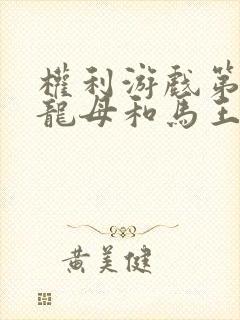 權利游戲第
龍母和馬王
黃美健